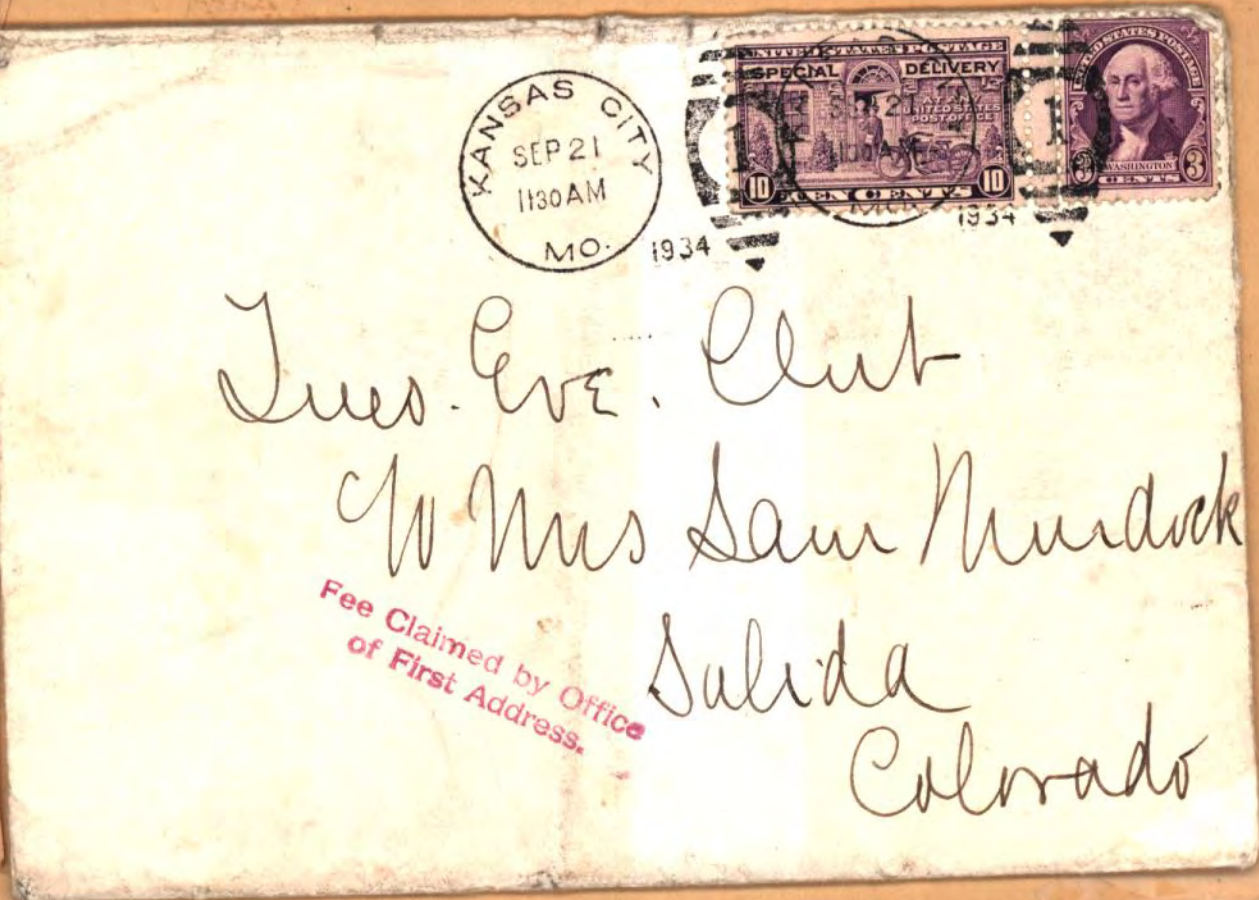 KANSAS CITY
SEP 21
1130 AM
MO.
1934
UNITED STATES POSTAGE
SPECIAL DELIVERY
AT ANY
UNITED STATES
POST OFFICE
10 TEN CENTS 10
MO.
1934
UNITED STATES POSTAGE
WASHINGTON
3 CENTS 3
Tues. Eve. Club
c/o Mrs Sam Murdock
Salida
Colorado
Fee Claimed by Office
of First Address.